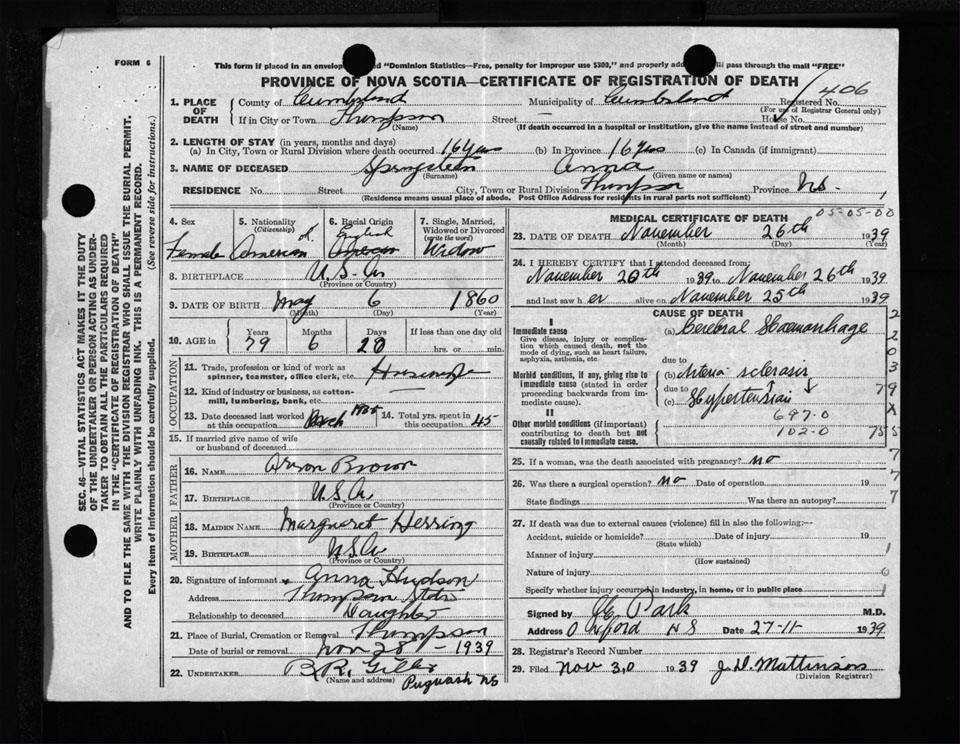 FORM 6
This form if placed in an envelope "Dominion Statistics—Free, penalty for improper use $300," and properly will pass through the mail "FREE"
PROVINCE OF NOVA SCOTIA—CERTIFICATE OF REGISTRATION OF DEATH
406
1. PLACE OF DEATH County of Cumberland Municipality of Cumberland Registered No.
(For use of Registrar General only)
If in City or Town Thompson Street House No.
(Name) (If death occurred in a hospital or institution, give the name instead of street and number)
2. LENGTH OF STAY (in years, months and days)
(a) In City, Town or Rural Division where death occurred 16 yrs (b) In Province 16 yrs (c) In Canada (if immigrant)
3. NAME OF DECEASED Springstein Anna
(Surname) (Given name or names)
RESIDENCE No. Street City, Town or Rural Division Thompson Province N.S.
(Residence means usual place of abode. Post Office Address for residents in rural parts not sufficient)
1
SEC. 46—VITAL STATISTICS ACT MAKES IT THE DUTY
OF THE UNDERTAKER OR PERSON ACTING AS UNDER-
TAKER TO OBTAIN ALL THE PARTICULARS REQUIRED
IN THE "CERTIFICATE OF REGISTRATION OF DEATH"
AND TO FILE THE SAME WITH THE DIVISION REGISTRAR WHO SHALL ISSUE THE BURIAL PERMIT.
WRITE PLAINLY WITH UNFADING INK. THIS IS A PERMANENT RECORD.
Every item of information should be carefully supplied. (See reverse side for instructions.)
4. Sex 5. Nationality (Citizenship) 6. Racial Origin 7. Single, Married, Widowed or Divorced (write the word)
English
Female American Widow
8. BIRTHPLACE U.S.A.
(Province or Country)
9. DATE OF BIRTH May 6 1860
(Month) (Day) (Year)
10. AGE in Years Months Days If less than one day old
79 6 20 hrs. or min.
OCCUPATION
11. Trade, profession or kind of work as spinner, teamster, office clerk, etc. Housewife
12. Kind of industry or business, as cotton-mill, lumbering, bank, etc.
13. Date deceased last worked at this occupation March 1935 14. Total yrs. spent in this occupation 45
15. If married give name of wife or husband of deceased
FATHER
16. NAME Orson Brown
17. BIRTHPLACE U.S.A.
(Province or Country)
MOTHER
18. MAIDEN NAME Margnaret Herring
19. BIRTHPLACE U.S.A.
(Province or Country)
20. Signature of informant Anna Hudson
Address Thompson Statio
Relationship to deceased Daughter
21. Place of Burial, Cremation or Removal Thompson
Date of burial or removal Nov 28 - 1939
22. UNDERTAKER
(Name and address) Pugwash NS
05-05-00
MEDICAL CERTIFICATE OF DEATH
23. DATE OF DEATH November 26th 1939
(Month) (Day) (Year)
24. I HEREBY CERTIFY that I attended deceased from:
November 20th 1939 to November 26th 1939
and last saw h er alive on November 25th 1939
CAUSE OF DEATH
I
Immediate cause
Give disease, injury or complication which caused death, not the mode of dying, such as heart failure, asphyxia, asthenia, etc.
(a) Cerebral Haemorrhage
due to
Morbid conditions, if any, giving rise to immediate cause (stated in order proceeding backwards from immediate cause).
(b) Arterio sclerosis
due to
(c) Hypertension
II
697-0
Other morbid conditions (if important) contributing to death but not causally related to immediate cause.
102-0
2
2
0
3
79
X
755
7
7
7
1
6
1
25. If a woman, was the death associated with pregnancy? no
26. Was there a surgical operation? no Date of operation 19
State findings Was there an autopsy?
27. If death was due to external causes (violence) fill in also the following:—
Accident, suicide or homicide? Date of injury 19
(State which)
Manner of injury
(How sustained)
Nature of injury
Specify whether injury occurred in industry, in home, or in public place
Signed by Park M.D.
Address Oxford N S Date 27-11- 1939
28. Registrar's Record Number
29. Filed Nov 30 1939 J. D. Mattinson
(Division Registrar)